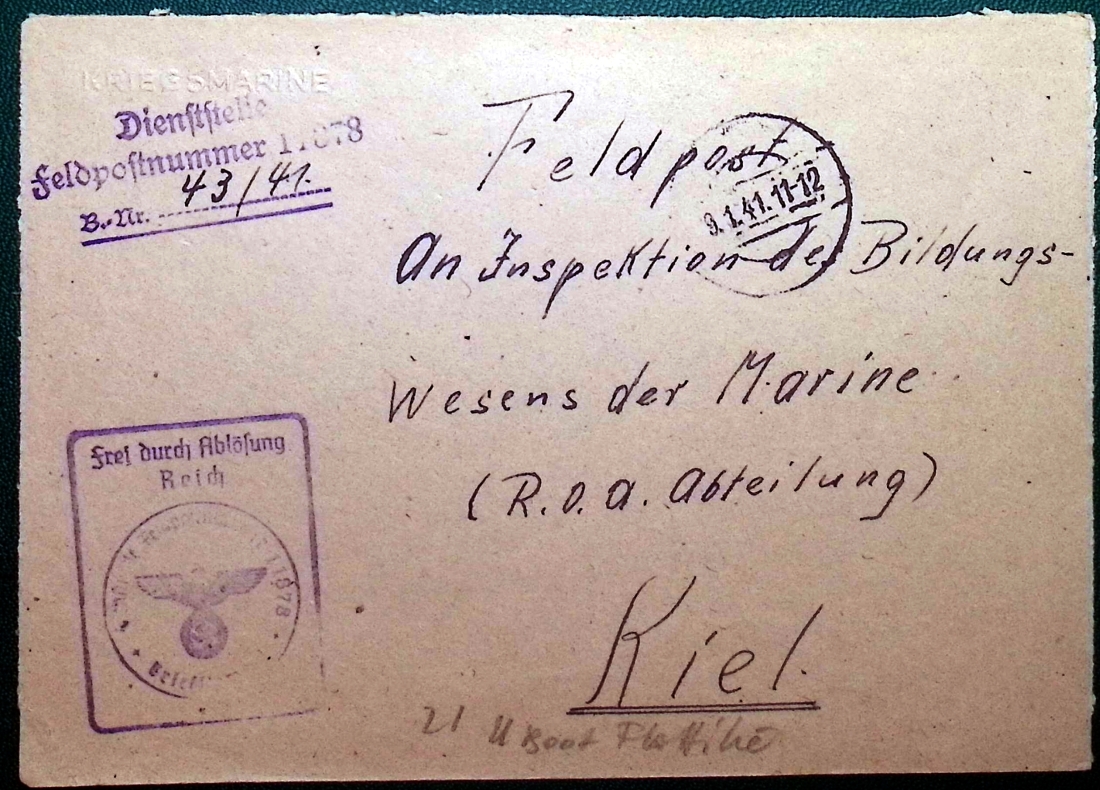 KRIEGSMARINE
Dienststelle
Feldpostnummer 11878
B.-Nr. 43/41.
Feldpost
9.1.41.11-12
An Inspektion des Bildungs-
Wesens der Marine
(R.O.A. Abteilung)
Kiel.
Frei durch Ablösung
Reich
11878
21 U Boot